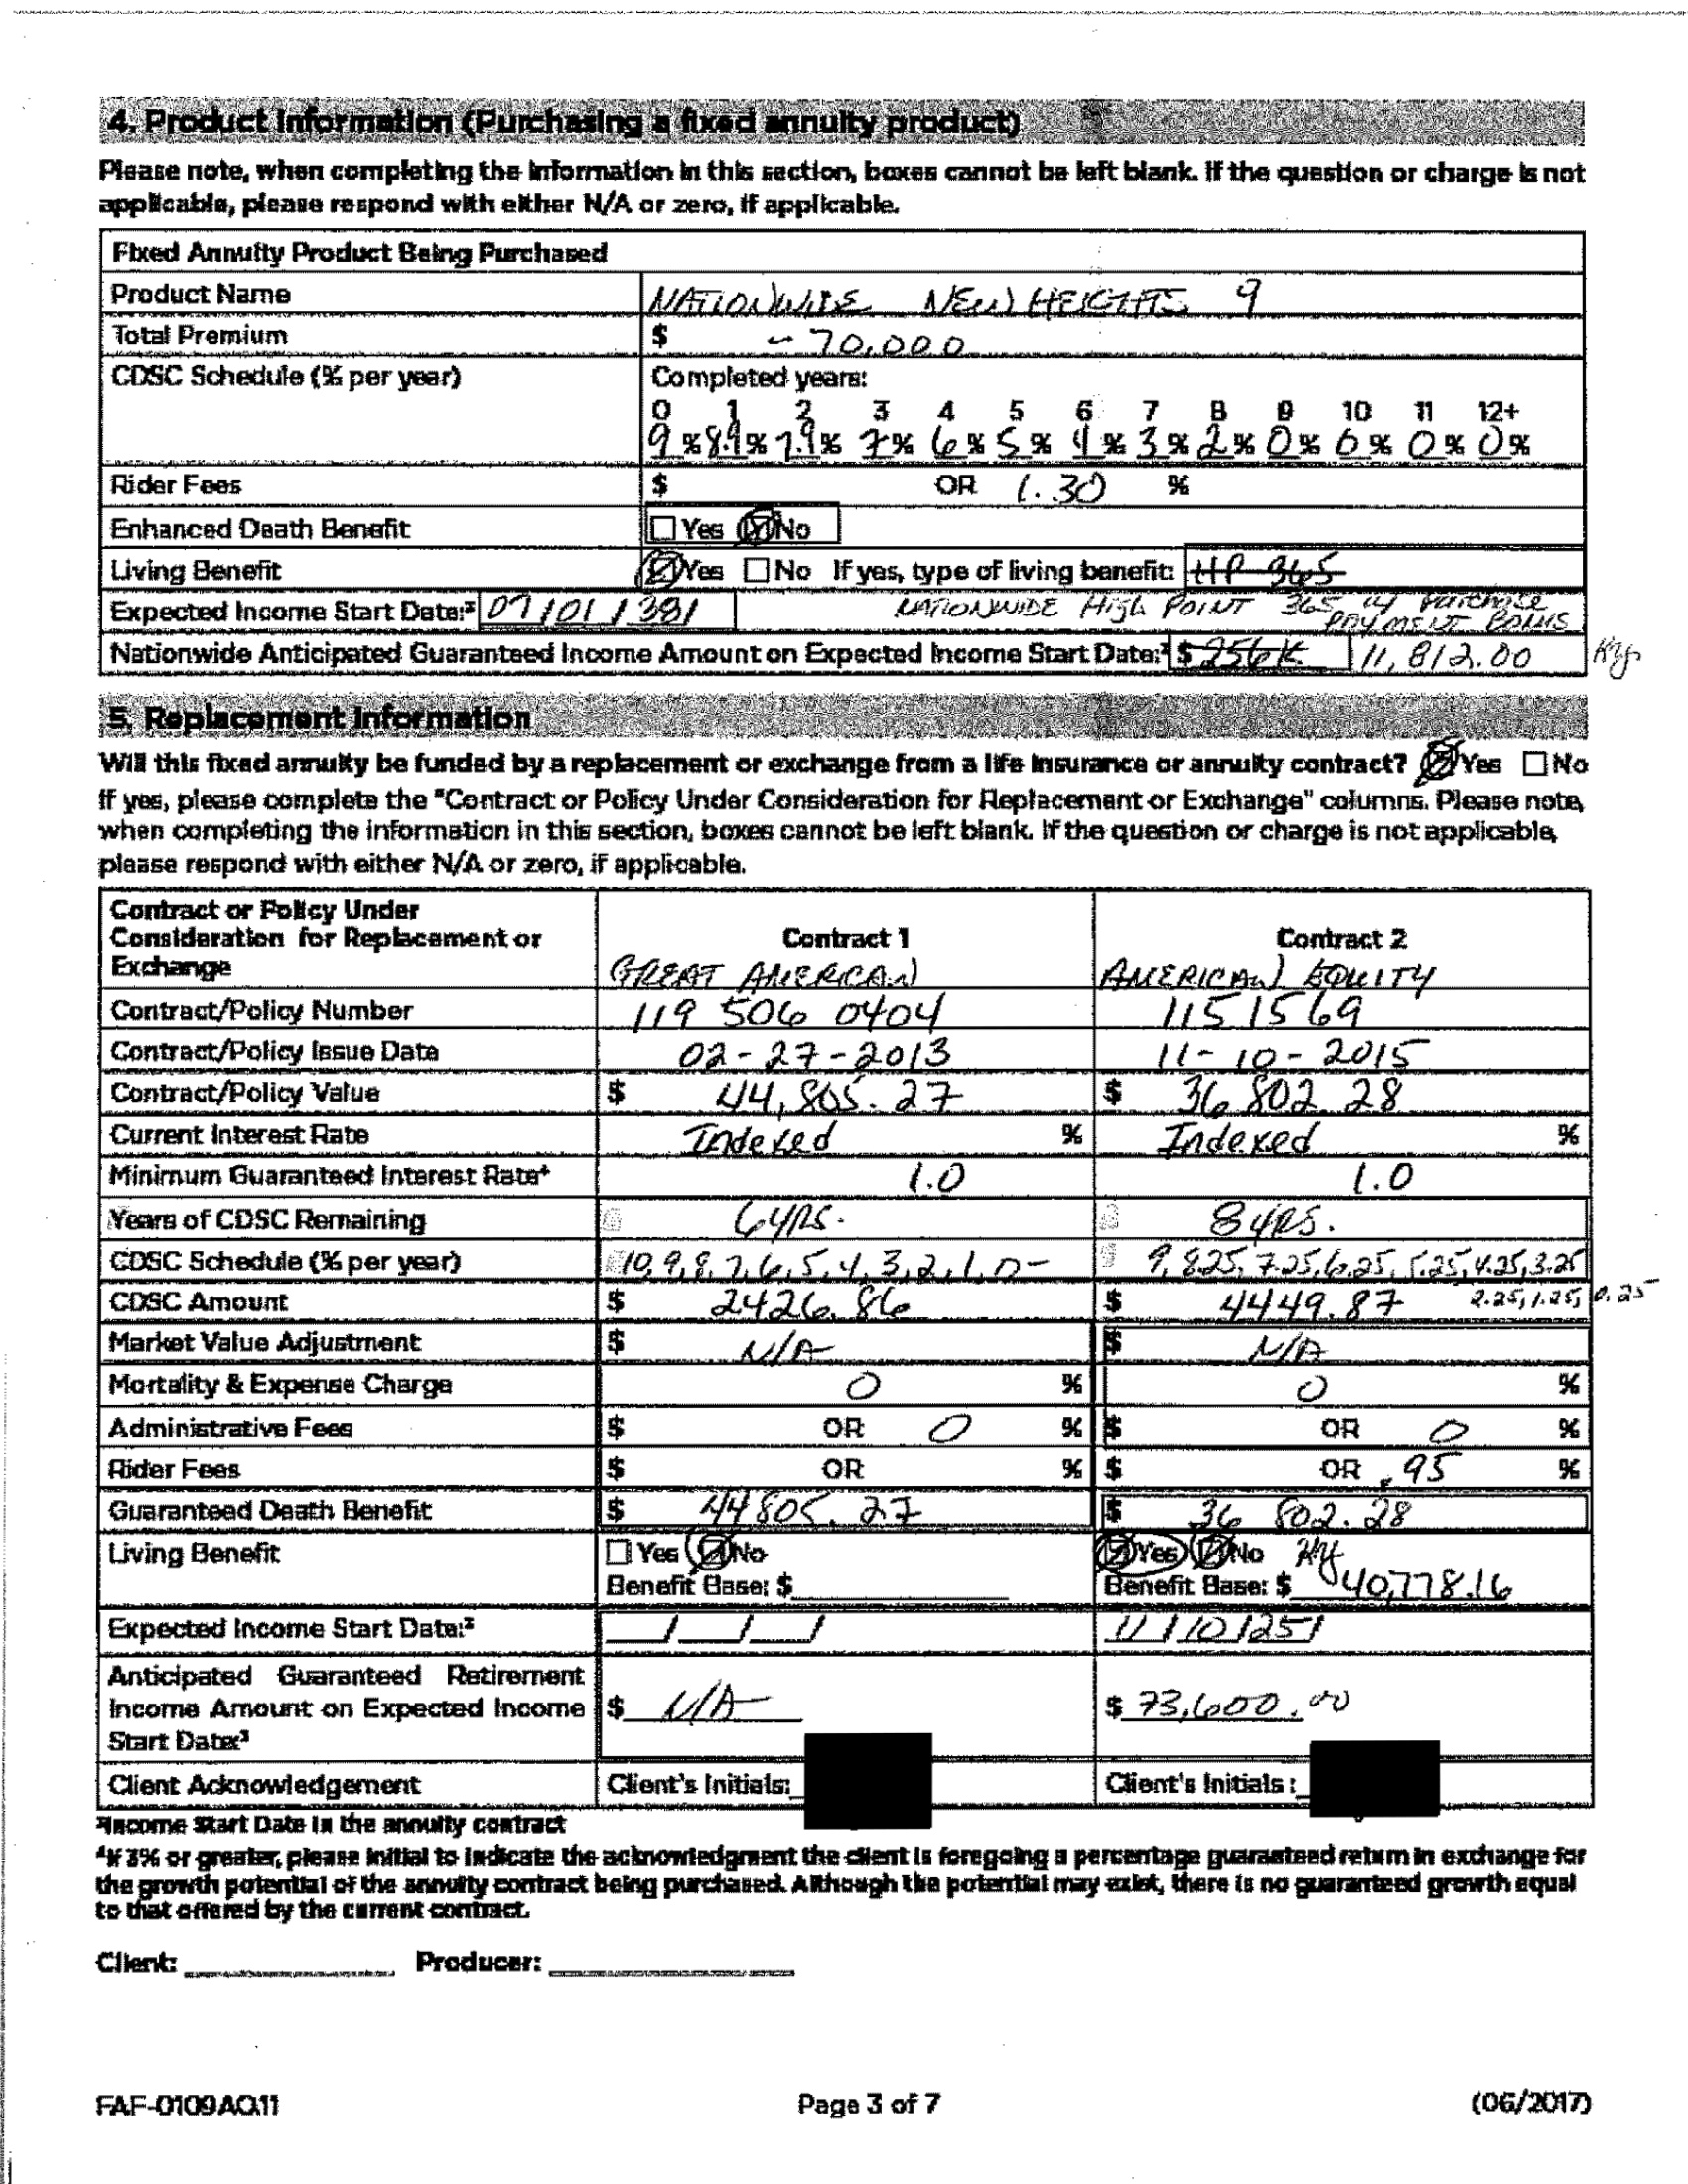 4. Product Information (Purchasing a fixed annuity product)
Please note, when completing the information in this section, boxes cannot be left blank. If the question or charge is not
applicable, please respond with either N/A or zero, if applicable.
Fixed Annuity Product Being Purchased
Product Name NATIONWIDE NEW HEIGHTS 9
Total Premium $ ~ 70,000
CDSC Schedule (% per year) Completed years:
0 1 2 3 4 5 6 7 8 9 10 11 12+
9 % 8.1 % 7.1 % 7 % 6 % 5 % 4 % 3 % 2 % 0 % 0 % 0 % 0 %
Rider Fees $ OR 1.30 %
Enhanced Death Benefit Yes No
Living Benefit Yes No If yes, type of living benefit: HP 365
Expected Income Start Date:³ 07/01/38/ NATIONWIDE High POINT 365 w/ purchase
PAYMENT BONUS
Nationwide Anticipated Guaranteed Income Amount on Expected Income Start Date:³ $ 256K 11,812.00
5. Replacement Information
Will this fixed annuity be funded by a replacement or exchange from a life insurance or annuity contract? Yes No
If yes, please complete the "Contract or Policy Under Consideration for Replacement or Exchange" columns. Please note,
when completing the information in this section, boxes cannot be left blank. If the question or charge is not applicable,
please respond with either N/A or zero, if applicable.
Contract or Policy Under
Consideration for Replacement or Contract 1 Contract 2
Exchange GREAT AMERICAN AMERICAN EQUITY
Contract/Policy Number 119 506 0404 1151569
Contract/Policy Issue Date 02-27-2013 11-10-2015
Contract/Policy Value $ 44,805.27 $ 36 802.28
Current Interest Rate Indexed % Indexed %
Minimum Guaranteed Interest Rate⁴ 1.0 1.0
Years of CDSC Remaining 6 yrs. 8 yrs.
CDSC Schedule (% per year) 10,9,8,7,6,5,4,3,2,1,0- 9,8.25,7.25,6.25,5.25,4.25,3.25
CDSC Amount $ 2426.86 $ 4449.87 2.25,1.25,0.25
Market Value Adjustment $ N/A $ N/A
Mortality & Expense Charge 0 % 0 %
Administrative Fees $ OR 0 % $ OR 0 %
Rider Fees $ OR % $ OR .95 %
Guaranteed Death Benefit $ 44805.27 $ 36 802.28
Living Benefit Yes No Yes No
Benefit Base: $ Benefit Base: $ 40,778.16
Expected Income Start Date:³ / / / 11/10/25/
Anticipated Guaranteed Retirement
Income Amount on Expected Income $ N/A $ 73,600.00
Start Date:³
Client Acknowledgement Client's Initials: Client's Initials:
³Income Start Date in the annuity contract
⁴If 3% or greater, please initial to indicate the acknowledgment the client is foregoing a percentage guaranteed return in exchange for
the growth potential of the annuity contract being purchased. Although the potential may exist, there is no guaranteed growth equal
to that offered by the current contract.
Client: Producer:
FAF-0109AO.11 Page 3 of 7 (06/2017)